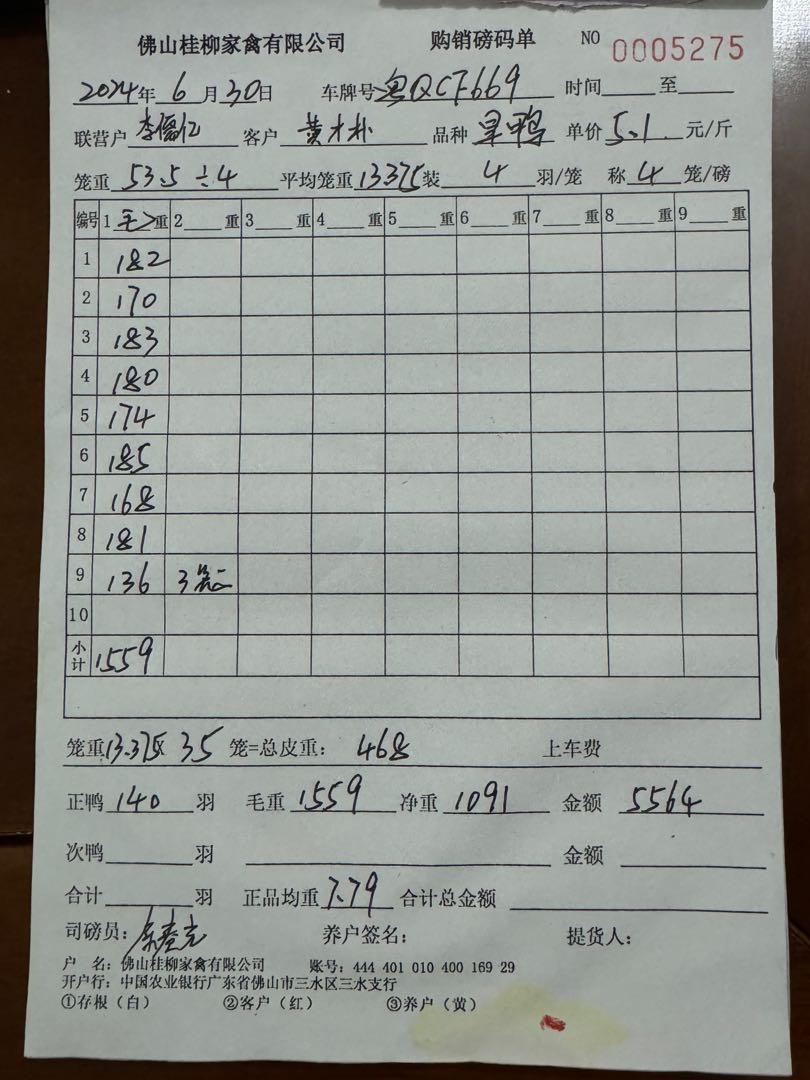 佛山桂柳家禽有限公司 购销磅码单 NO 0005275
2024年 6 月 30 日 车牌号 粤QCF669 时间 至
联营户 李儒仁 客户 黄才朴 品种 单价 5.1 元/斤
笼重 53.5 ÷ 4 平均笼重 13.375 装 4 羽/笼 称 4 笼/磅
编号 1 毛 重 2 重 3 重 4 重 5 重 6 重 7 重 8 重 9 重
1 182
2 170
3 183
4 180
5 174
6 185
7 168
8 181
9 136 3笼
10
小计 1559
笼重 13.375 x 35 笼=总皮重: 468 上车费
正鸭 140 羽 毛重 1559 净重 1091 金额 5564
次鸭 羽 金额
合计 羽 正品均重 7.79 合计总金额
司磅员: 养户签名: 提货人:
户 名: 佛山桂柳家禽有限公司 账号: 444 401 010 400 169 29
开户行: 中国农业银行广东省佛山市三水区三水支行
①存根(白) ②客户(红) ③养户(黄)